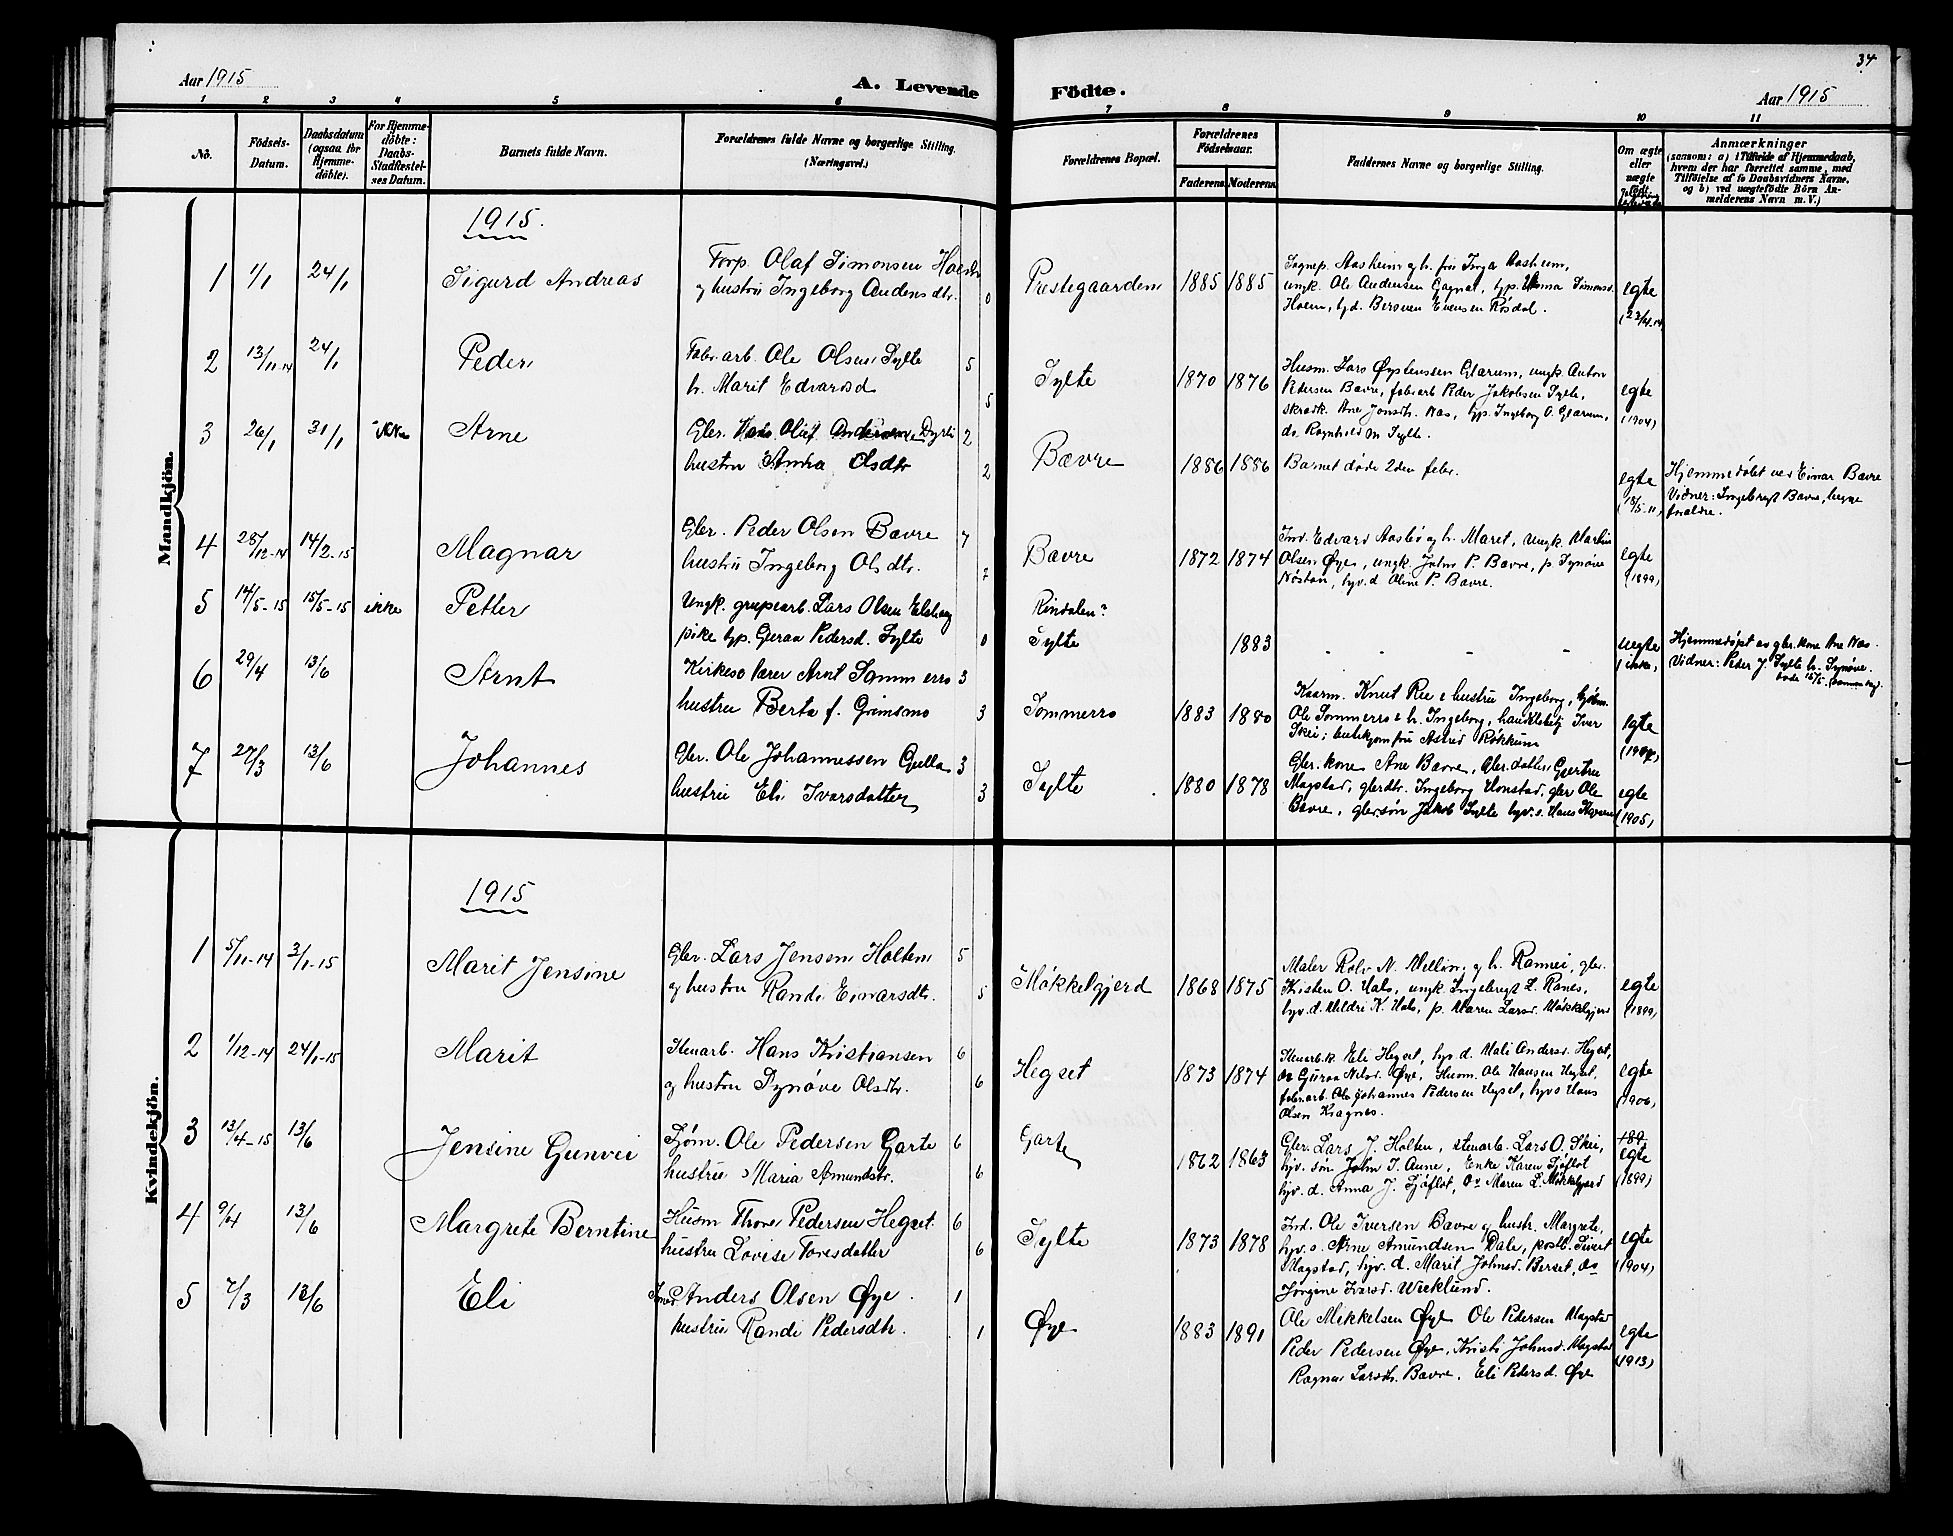 34
Aar 1915
A. Levende Födte.
Aar 1915
1 2 3 4 5 6 7 8 9 10 11
No.
Födsels-Datum.
Daabsdatum (ogsaa for Hjemme-döbte).
For Hjemme-döbte: Daabs-Stadfæstel-ses Datum.
Barnets fulde Navn.
Forældrenes fulde Navne og borgerlige Stilling. (Næringsvei.)
Forældrenes Bopæl.
Forældrenes Födselsaar.
Faderens. Moderens.
Faddernes Navne og borgerlige Stilling.
Om ægte eller uægte födt.
Anmærkninger
(saasom: a) i Tilfælde af Hjemmedaab,
hvem der har forrettet samme, med
Tilföielse af to Daabsvidners Navne,
og b) ved uægtefödte Börn An-
melderens Navn m. V.)
Mandkjön.
1915.
1 1/1 24/1 Sigurd Andreas
Forp. Olaf Simonsen Hoem
og hustru Ingeborg Andersdtr. 0
Prestegaarden 1885 1885
Sognep. Aasheim og h. fru Inga Aasheim,
ungk. Ole Andersen Gagnat, typ. Anna Simonsd.
Hoem, tyd. Beroven Evensen Røsdal.
egte
2 13/11-14 24/1 Peder
Fabr.arb. Ole Olsen Sylte 5
h. Marit Edvardsd 5
Sylte 1870 1876
Husm. Lars Øystenssen Glærum, ungk. Anton
Petersen Bævre, fabrarb Peder Jakobsen Sylte,
skrædk. Ane Jonsdtr. Næs, typ. Ingeborg O. Glærum,
do. Ragnhild M Sylte.
egte
(1904)
3 26/1 31/1 ikke Arne
Gbr. Hans Oluf Andersen Dyrli 2
hustru Anna Olsdtr 2
Bævre 1886 1886 Barnet døde 2den febr.
egte
(18/5-11)
Hjemmedøbt ved Einar Bævre
Vidner: Ingebregt Bævre, begge
forældre.
4 28/12-14 14/2-15 Magnar
Gbr. Peder Olsen Bævre 7
hustru Ingeborg Olsdtr. 7
Bævre 1872 1874
Ind. Edvard Aasbø og h. Maret, ungk. Martin
Olsen Øye, ungk. John P. Bævre, p Synøve
Nøstan, hyv.d Oline P. Bævre.
egte
(1899)
5 14/5-15 15/5-15 ikke Petter
Ungk. grupearb. Lars Olsen
pike typ. Guraa Pedersd. Sylte 0
Rindalen?
Sylte 1883
uegte
(ikke)
Hjemmedøpt av gbr. kone Ane Næs.
Vidner: Peder J. Sylte h. Synøve.
døde 15/5 (samme dag).
6 29/4 13/6 Arnt
Kirkeso lærer Arnt Sommerro 3
hustru Berta f. Grimsmo 3
Sommerro 1883 1880
Kaarm. Knut Ree & hustru Ingeborg,
Ole Sommerro & h. Ingeborg, handelsbetj Iver
Skei; butikjomfru Astrid Røkkum
egte
7 27/3 13/6 Johannes
Gbr. Ole Johannessen Gulla 3
hustru Eli Ivarsdatter 3
Sylte 1880 1878
Gbr. kone Ane Bævre, Gbr. datter Gjertru
Magstad, gbrdtr. Ingeborg Honstad, gbr Ole
Bævre, gbr.søn Jakob Sylte hyv.s. Hans
egte
(1905)
Kvindekjön.
1915
1 5/11-14 3/1-15 Marit Jensine
Gbr. Lars Jensen Holten 5
og hustru Randi Einarsdtr. 5
Møkkelgjerd 1868 1875
Maler Rolv N. Mellin, og h. Rannei, gbr.
Kristen O. Hals, ungk. Ingebregt L. Ranes,
hyv.d. Mildri K. Hals, p. Maren Larsd. Møkkelgjerd
egte
(1899)
2 1/12-14 24/1-15 Marit
Stenarb. Hans Kristiansen 6
og hustru Synøve Olsdtr. 6
Hegset 1873 1874
Stenarb.k. Eli Hegset, hyv d. Mali Andersd. Hegset,
do Guraa Nilsd. Øye, Husm. Ole Hansen Hegset,
fabr.arb. Ole Johannes Pedersen Hegset, hyvs Hans
Olsen Kragnes.
egte
(1906)
3 13/4-15 13/6 Jensine Gunvei
Sjøm. Ole Pedersen Garte 6
hustru Maria Amundstr. 6
Garte 1862 1863
Gbr. Lars J. Holten, stenarb. Lars O. Skei,
hjv. søn John I. Aune, Enke Karen Sjøflot
hjv. d. Anna J. Sjøflot, Do Maren L. Møkkelgjerd
egte
(1899)
4 9/4 13/6 Margrete Berntine
Husm Thore Pedersen Hegset. 6
hustru Lovise Toresdatter 6
Sylte 1873 1878
Ind. Ole Iversen Bævre og hustr. Margrete,
hyv. s. Arne Amundsen Dale, postb. Sivert
Magstad, hyv. d. Marit Johnsd. Berset, do
Jørgine Ivarsd. Wicklund.
egte
(1904)
5 7/3 13/6 Eli
Anders Olsen Øye. 1
hustru Randi Pedersdtr. 1
Øye 1883 1891
Ole Mikkelsen Øye Ole Pedersen Magstad
Peder Pedersen Øye, Kristi Johnsd. Magstad
Ragna Larsdtr. Bævre, Eli Pedersd. Øye
egte
(1913)